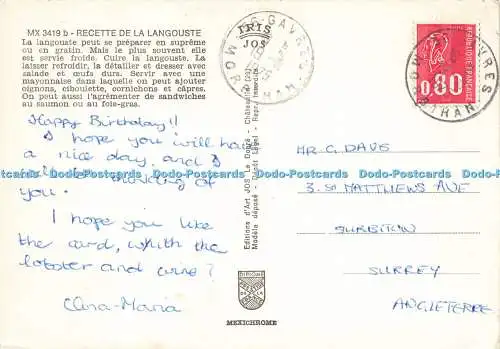 MX 3419 b - RECETTE DE LA LANGOUSTE
La langouste peut se préparer en suprême
ou en gratin. Mais le plus souvent elle
est servie froide. Cuire la langouste. La
laisser refroidir, la détailler et dresser avec
salade et œufs durs. Servir avec une
mayonnaise dans laquelle on peut ajouter
oignons, ciboulette, cornichons et câpres.
On peut aussi l'agrémenter de sandwiches
au saumon ou au foie-gras.
Happy Birthday!!
I hope you will have
a nice day, and I
will be thinking of
you.
I hope you like
the card, whith the
lobster and wine?
Clara-Maria
IRIS
JOS
Editions d'Art JOS Le Doaré - Châteaulin (29)
Modèle déposé - Dépôt Légal - Repr. Interdite
MEXICHROME
GAVRES
MORBIHAN
0,80
POSTES
REPUBLIQUE FRANÇAISE
MORBIHAN
MR G. DAVS
3. St MATTHEWS AVE
SURBITON
SURREY
ANGLETERRE
www.hippostcard.com